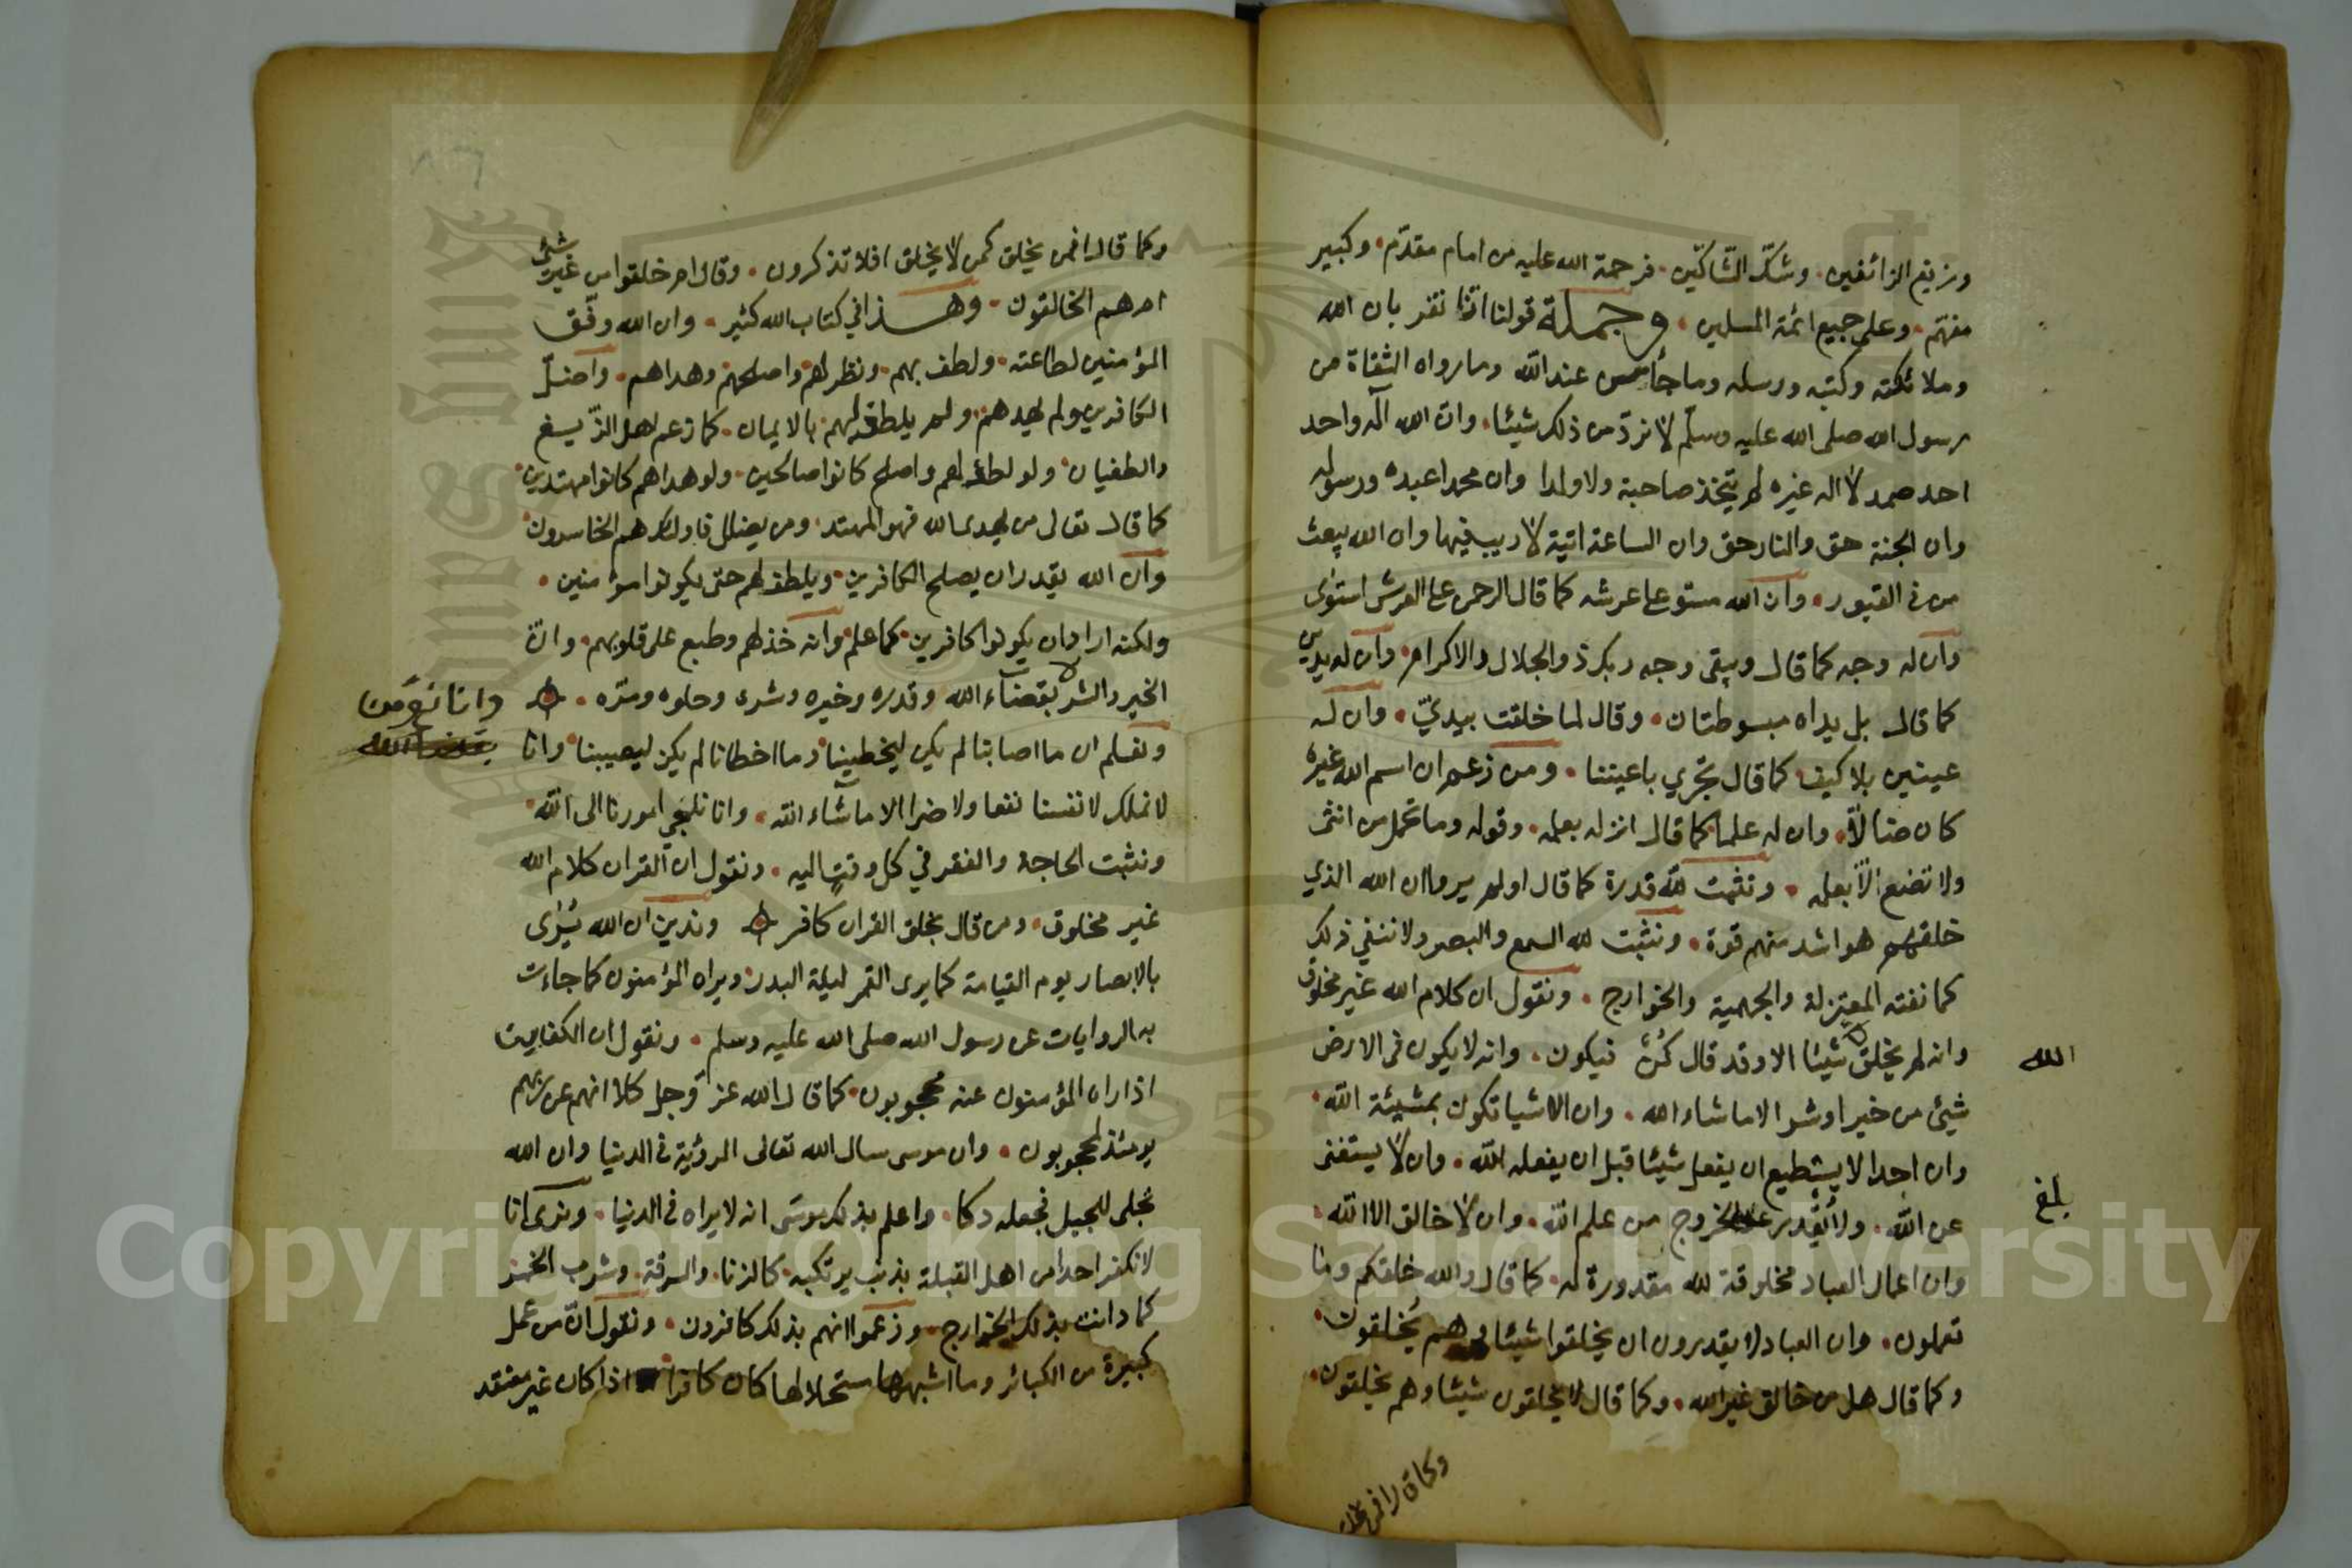 وزيغ الزائفين. وشك الشاكين. فرحمة الله عليه من امام مقدّم. وكبير
مفهم. وعلى جميع ائمة المسلمين. وجملة قولنا انا نقر بان الله
وملائكته وكتبه ورسله وما جأ من عند الله وما رواه الثقاة من
رسول الله صلى الله عليه وسلّم لا نردّ من ذلك شيئا. وان الله اله واحد
احد صمد لا اله غيره لم يتخذ صاحبة ولا ولدا وان محمدا عبده ورسوله
وان الجنة حق والنار حق وان الساعة اتية لا ريب فيها وان الله يبعث
من في القبور. وان الله مستو على عرشه كما قال الرحمن على العرش استوى
وان له وجه كما قال ويبقى وجه ربك ذو الجلال والاكرام. وان له يدين
كما قال بل يداه مبسوطتان. وقال لما خلقت بيديّ. وان له
عينين بلا كيف كما قال تجري باعيننا. ومن زعم ان اسم الله غيره
كان ضالاً. وان له علما كما قال انزله بعلمه. وقوله وما تحمل من انثى
ولا تضع الا بعلمه. ونثبت لله قدرة كما قال اولم يروا ان الله الذي
خلقهم هو اشد منهم قوة. ونثبت لله السمع والبصر ولا ننفي ذلك
كما نفته المعتزلة والجهمية والخوارج. ونقول ان كلام الله غير مخلوق
وانه لم يخلق شيئا الا وقد قال كُنْ فيكون. وانه لا يكون في الارض
الله
شيئ من خير او شر الا ما شاء الله. وان الاشيا تكون بمشيئة الله.
وان احدا لا يستطيع ان يفعل شيئا قبل ان يفعله الله. وان لا يستغني
بلغ
عن الله. ولا يقدر على الخروج من علم الله. وان لا خالق الا الله.
وان اعمال العباد مخلوقة لله مقدورة له. كما قال والله خلقكم وما
تعملون. وان العباد لا يقدرون ان يخلقوا شيئا وهم يُخلقون.
وكما قال هل من خالق غير الله. وكما قال لا يخلقون شيئا وهم يخلقون.
وكما قال افمن يخلق
وكما قال افمن يخلق كمن لا يخلق افلا تذكرون. وقال ام خلقوا من غير شئ
ام هم الخالقون. وهذا في كتاب الله كثير. وان الله وفّق
المؤمنين لطاعته. ولطف بهم. ونظر لهم واصلحهم وهداهم. واضلّ
الكافرين ولم يهدهم. ولم يلطف بهم بالايمان. كما زعم اهل الزّيغ
والطغيان. ولو لطف لهم واصلح كانوا صالحين. ولو هداهم كانوا مهتدين.
كما قال تعالى من يهدي الله فهو المهتد. ومن يضلل فاولئك هم الخاسرون.
وان الله يقدر ان يصلح الكافرين. ويلطف لهم حتى يكونوا مؤمنين.
ولكنه اراد ان يكونوا كافرين. كما علم. وانه خذلهم وطبع على قلوبهم. وانّ
الخير والشر بقضاء الله وقدره وخيره وشره وحلوه ومرّه.
وانا نؤمن
ونعلم ان ما اصابنا لم يكن ليخطينا. وما اخطانا لم يكن ليصيبنا. وانا
لا نملك لانفسنا نفعا ولا ضرا الا ما شاء الله. وانا نلجي امورنا الى الله.
ونثبت الحاجة والفقر في كل وقت اليه. ونقول ان القران كلام الله
غير مخلوق. ومن قال بخلق القران كافر وندين ان الله يُرى
بالابصار يوم القيامة كما يرى القمر ليلة البدر. ويراه المؤمنون كما جاءت
به الروايات عن رسول الله صلى الله عليه وسلم. ونقول ان الكفارين
اذا راه المؤمنون عنه محجوبون. كما قال الله عز وجل كلا انهم عن ربهم
يومئذ لمحجوبون. وان موسى سال الله تعالى الرؤية في الدنيا وان الله
تجلى للجبل فجعله دكا. واعلم بذلك موسى انه لا يراه في الدنيا. ونرى انا
لا نكفر احدا من اهل القبلة بذنب يرتكبه. كالزنا. والسرقة. وشرب الخمر
كما دانت بذلك الخوارج. وزعموا انهم بذلك كافرون. ونقول انّ من عمل
كبيرة من الكبائر وما اشبهها مستحلا لها كان كافرا اذا كان غير معتقد